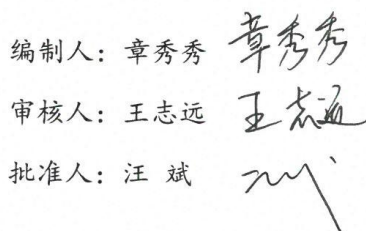 编制人：章秀秀 章秀秀
审核人：王志远 王志远
批准人：汪 斌